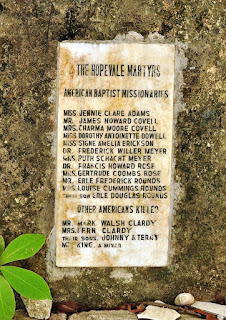 THE HOPEVALE MARTYRS
AMERICAN BAPTIST MISSIONARIES
MISS JENNIE CLARE ADAMS
MR. JAMES HOWARD COVELL
MRS. CHARMA MOORE COVELL
MISS DOROTHY ANTOINETTE DOWELL
MISS SIGNE AMELIA ERICKSON
DR. FREDERICK WILLER MEYER
MRS. RUTH SCHACHT MEYER
DR. FRANCIS HOWARD ROSE
MRS. GERTRUDE COOMBS ROSE
MR. ERLE FREDERICK ROUNDS
MRS. LOUISE CUMMINGS ROUNDS
THEIR SON ERLE DOUGLAS ROUNDS
OTHER AMERICANS KILLED
MR. MARK WALSH CLARDY
MRS. FERN CLARDY
THEIR SONS, JOHNNY & TERRY
MR. KING, A MINER